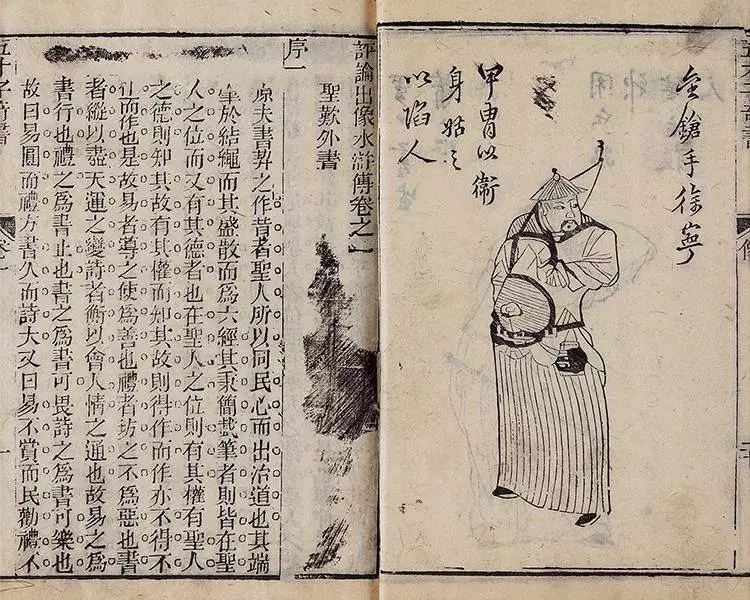 金鎗手徐寧
甲冑以衞
身姑之
以陷人
評論出像水滸傳卷之一
聖歎外書
序一
原夫書契之作昔者聖人所以同民心而出治道也其端
肇於結繩而其盛散而爲六經其秉簡載筆者則皆在聖
人之位而又有其德者也在聖人之位則有其權有聖人
之德則知其故有其權而知其故則得作而作亦不得不
作而作也是故易者導之使爲善也禮者坊之不爲惡也書
者縱以盡天運之變詩者衡以會人情之通也故易之爲
書行也禮之爲書止也書之爲書可畏詩之爲書可樂也
故曰易圓而禮方書久而詩大又曰易不賞而民勸禮不